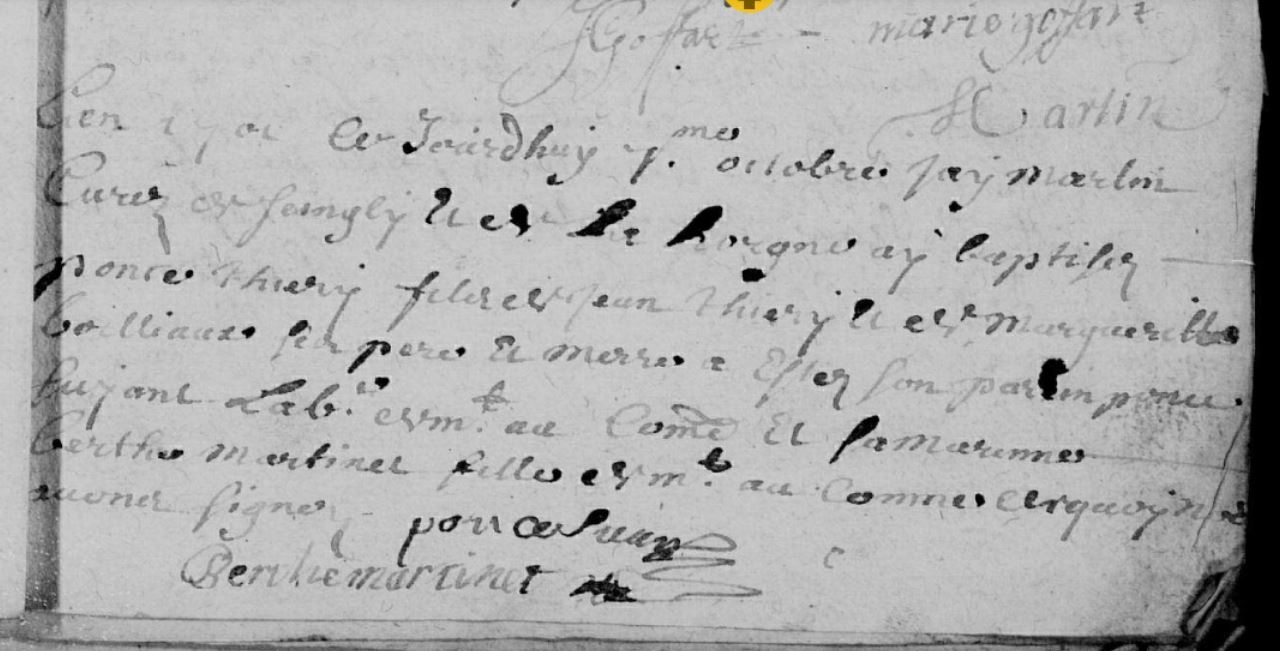 JGoffart - marie goffart
Martin
L'en 1701 Ce Jourdhuy 7.me octobre jay martin
Curez de singly Et de La horgne ay baptisez
ponce thiery fils de jean thiery Et de marguerille
boilliaux ses pere Et merre a Estez son parin ponce
suzant Lab.r dem.t au Comẽ Et samarenne
berthe martinet fille dem.t au Comme cequoy n
avons signez
ponce Suzan
Berthe martinet